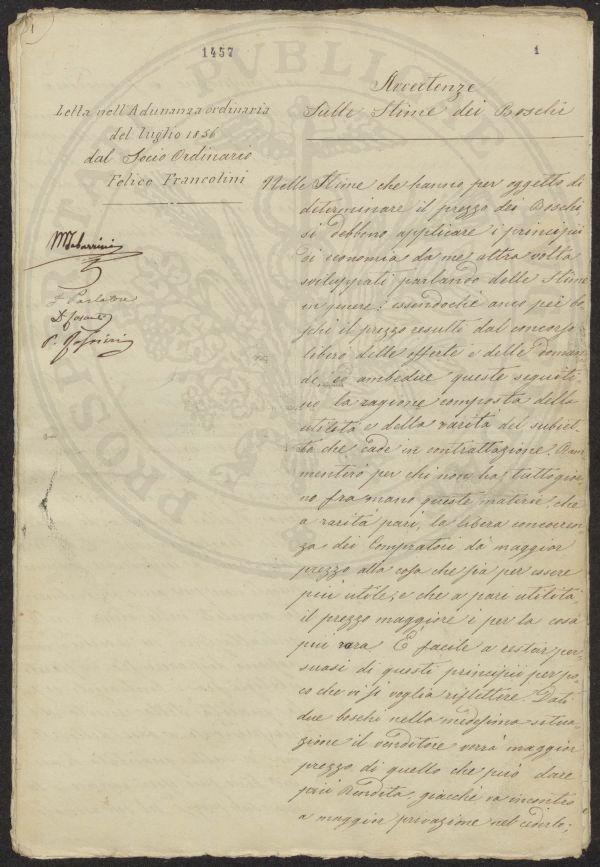 1
1457
1
Avvertenze
Sulle Stime dei Boschi
Letta nell'Adunanza ordinaria
del luglio 1856
dal Socio Ordinario
Felice Francolini
MTabarrini
Nelle Stime che hanno per oggetto di
determinare il prezzo dei Boschi,
si debbono applicare i principii
di economia da me altra volta
sviluppati parlando delle Stime
in genere; essendochè anco per bo
schi il prezzo resulti dal concorso
libero delle offerte e delle doman
de, ed ambedue queste seguoti-
no la ragione composta della
utilità e della rarità del subiet-
to che cade in contrattazione. Ram
menterò per chi non ha tuttogior
no fra mano queste materie, che
a rarità pari, la libera concorren
za dei Compratori dà maggior
prezzo alla cosa che sia per essere
più utile; e che a pari utilità
il prezzo maggiore è per la cosa
più rara. È facile a restar per
suasi di questi principii per po
co che vi si voglia riflettere. Dati
due boschi nella medesima situa
zione il venditore vorrà maggior
prezzo di quello che può dare
più Rendita, giacchè va incontro
a maggior privazione nel cederlo;
PVBLICAE
PROSPERITATI